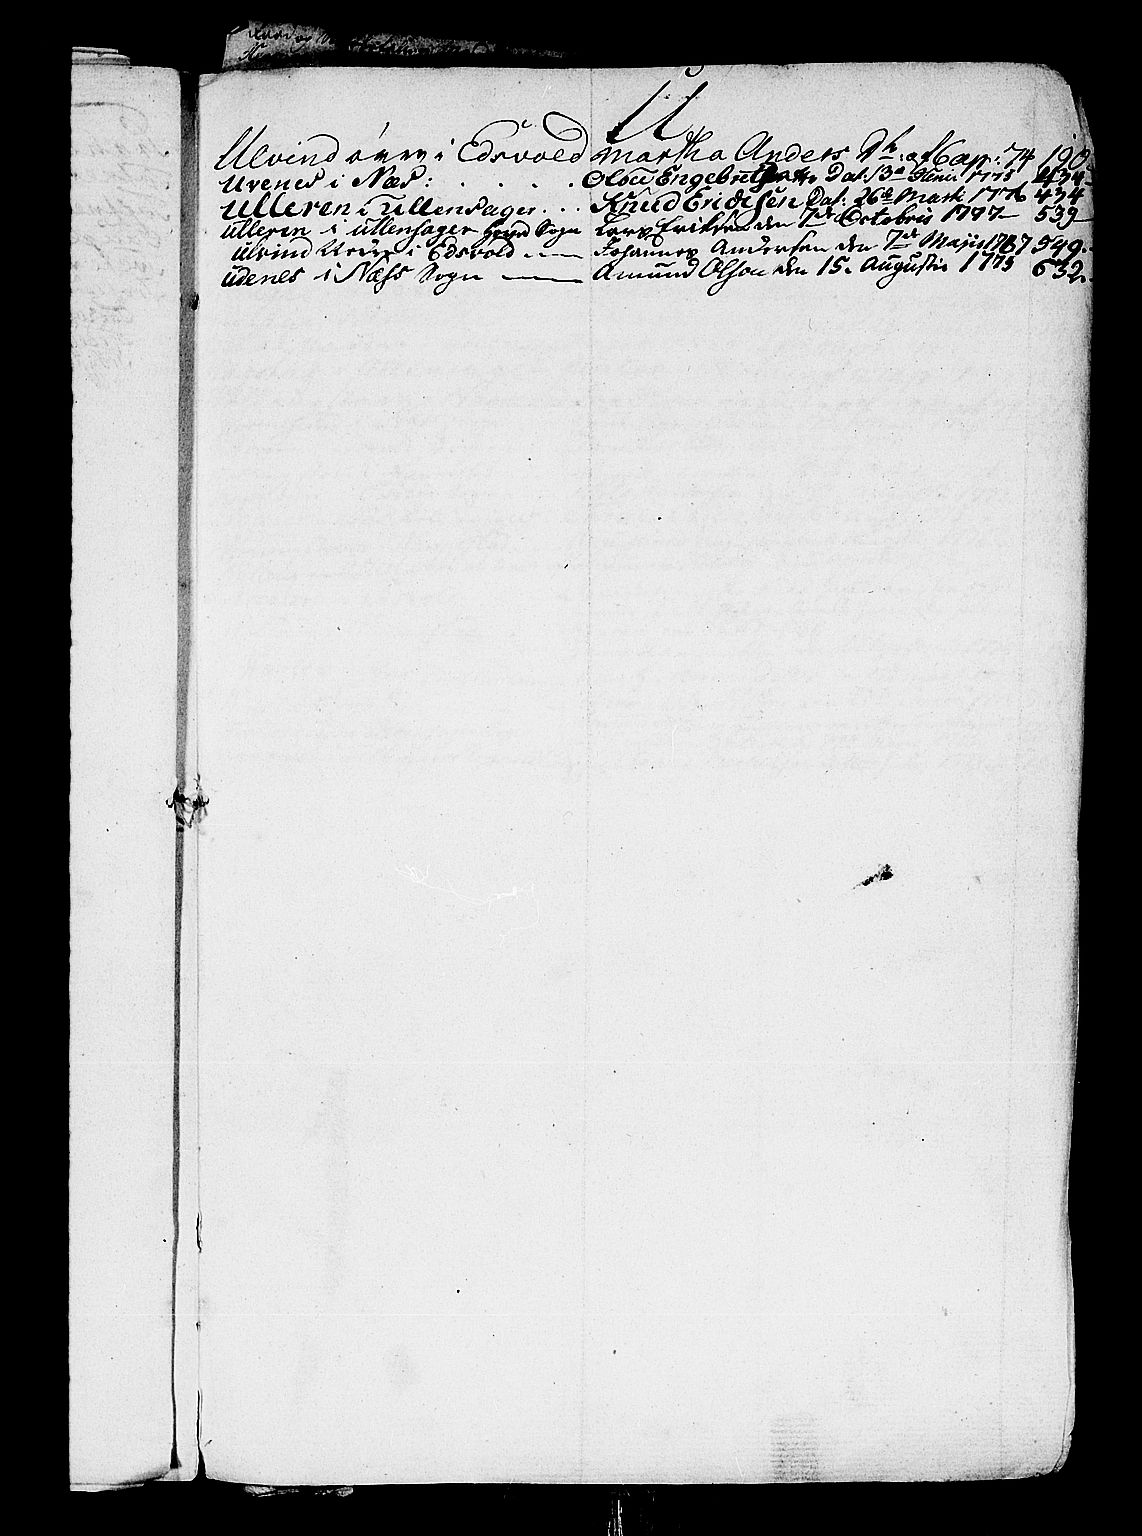 U
Ulvind øvre i Edsvold Martha Anders D: af 6 apr: 74 190
Udenes i Næs: . . . . . Olou Engebretsen Dat: 13de Junii 1775 434
Ulleren i Ullensager . . . Knud Erichsen Dat: 26de Marti 1776 434
Ulleren i Ullensager Sogn Lars Eriksen den 7de Octobris 1777 539
Ulvind Nedre i Edsvold — Johannes Andersen den 7de Maji 1767 549.
Udenes i Næss Sogn — Amund Olsen den 15. Augustii 1775 632.